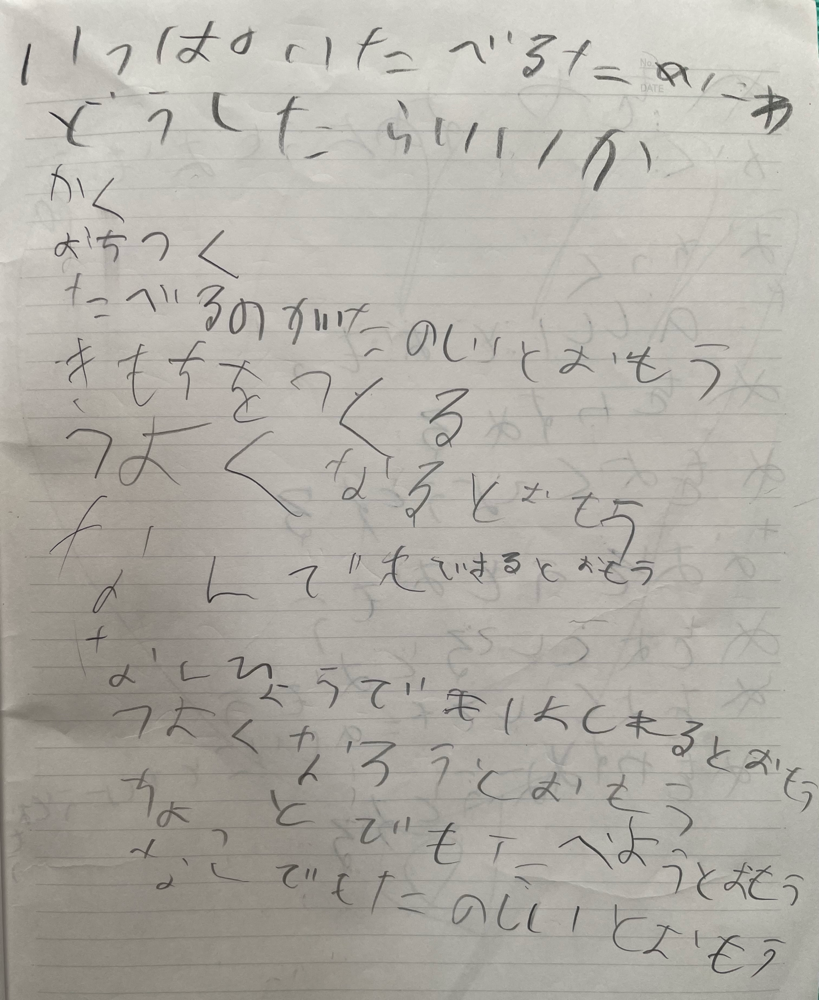 いっぱいたべるためには
どうしたらいいか
かく
おちつく
たべるのがたのしいとおもう
きもちをつくる
つよくなるとおもう
なんでもできるとおもう
つよくなろうとおもう
ちょっとでもたべようとおもう
なんでもたのしいとおもう